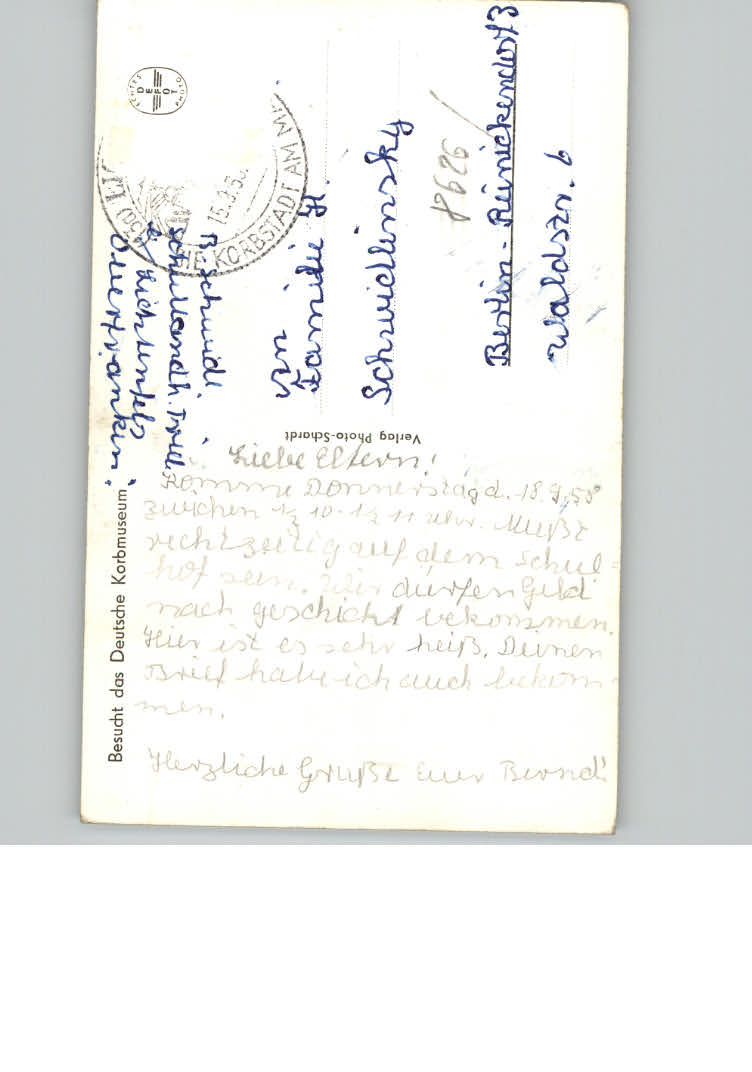 Besucht das Deutsche Korbmuseum
Verlag Photo-Schardt
ECHTES
DEFOT
PHOTO
HE KORBSTADT AM MA
15.9.5
B. Schwidl
Schullandh. Tried
b/ Lichtenfels
Oberfranken
An
Familie H.
Schwidlinsky
Berlin-Reinickendorf 3
Waldstr. 6
8626
Liebe Eltern!
Komme Donnerstag d. 18.9.58
zwichen 1/2 10-1/2 11 Uhr. Mußt
rechtzeitig auf dem Schul-
hof sein. Wir dürfen Geld
nach geschickt bekommen.
Hier ist es sehr heiß. Deinen
Brief habe ich auch bekom-
men.
Herzliche Grüße Euer Bernd!